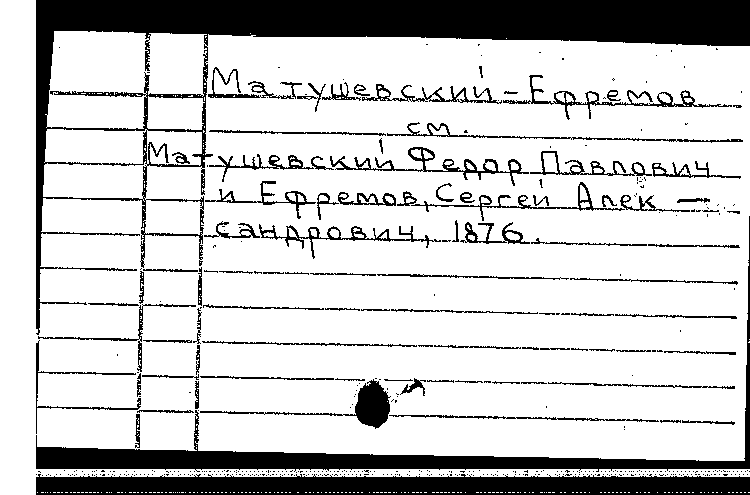 Матушевский-Ефремов
см.
Матушевский Федор Павлович
и Ефремов, Сергей Алек —
сандрович, 1876.